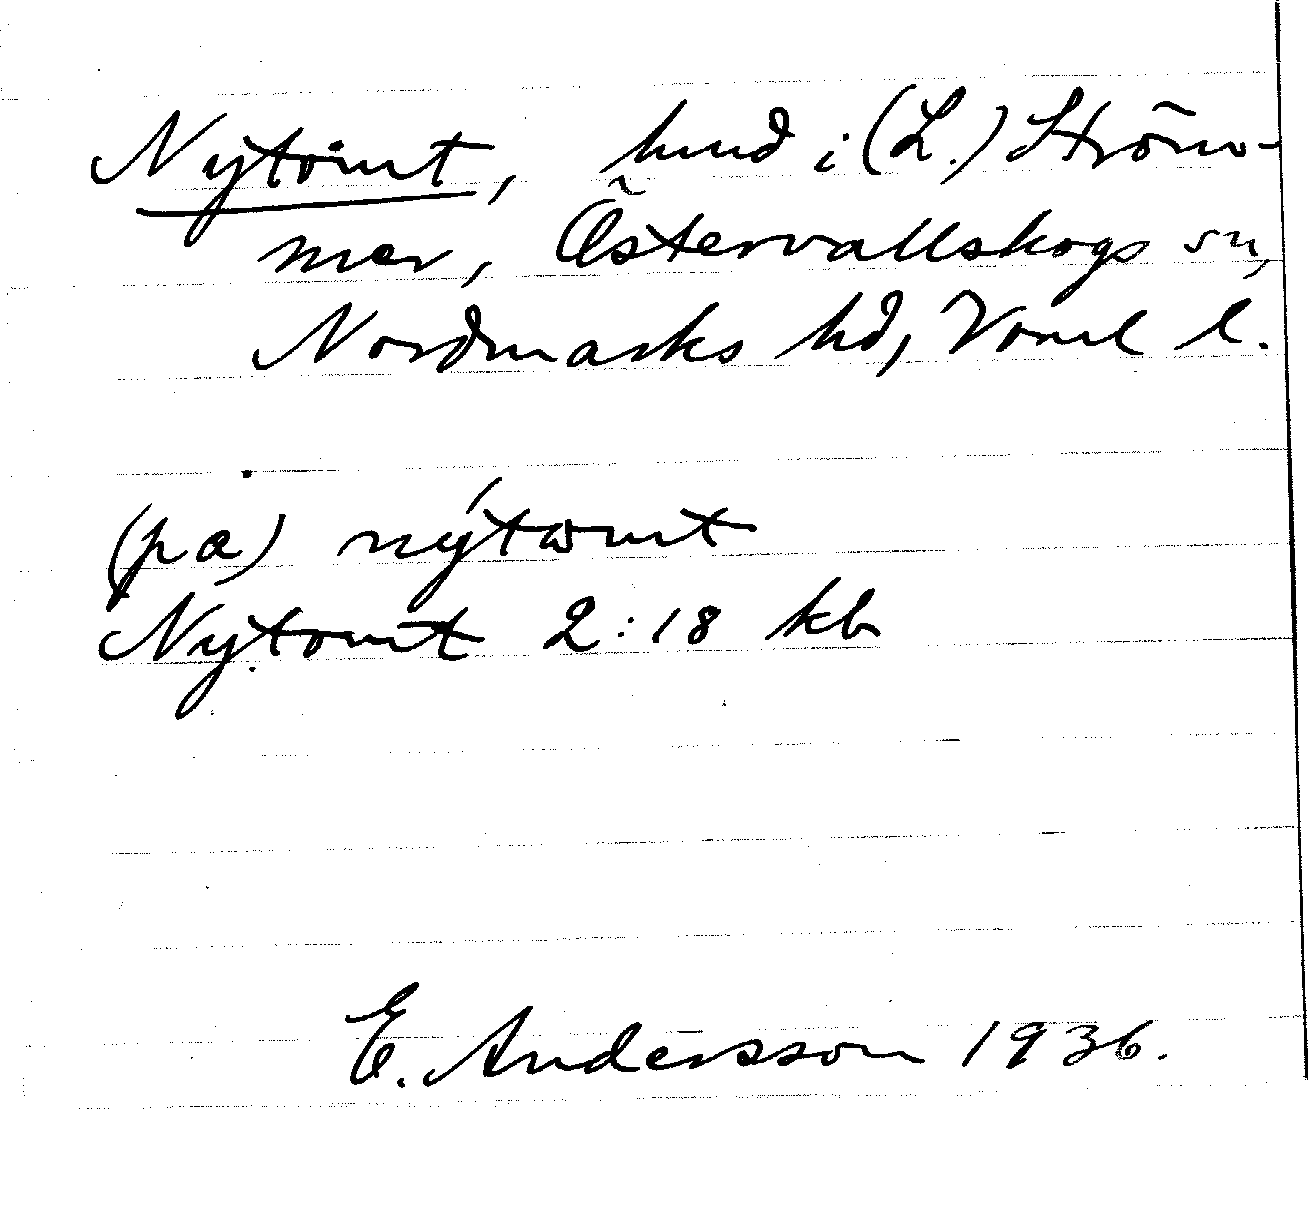 Nytomt, hmd i (L.) Ström-
mer, Östervallskogs sn,
Nordmarks hd, Vrml l.
(pa) nýtωmt
Nytomt 2:18 kb
E. Andersson 1936.